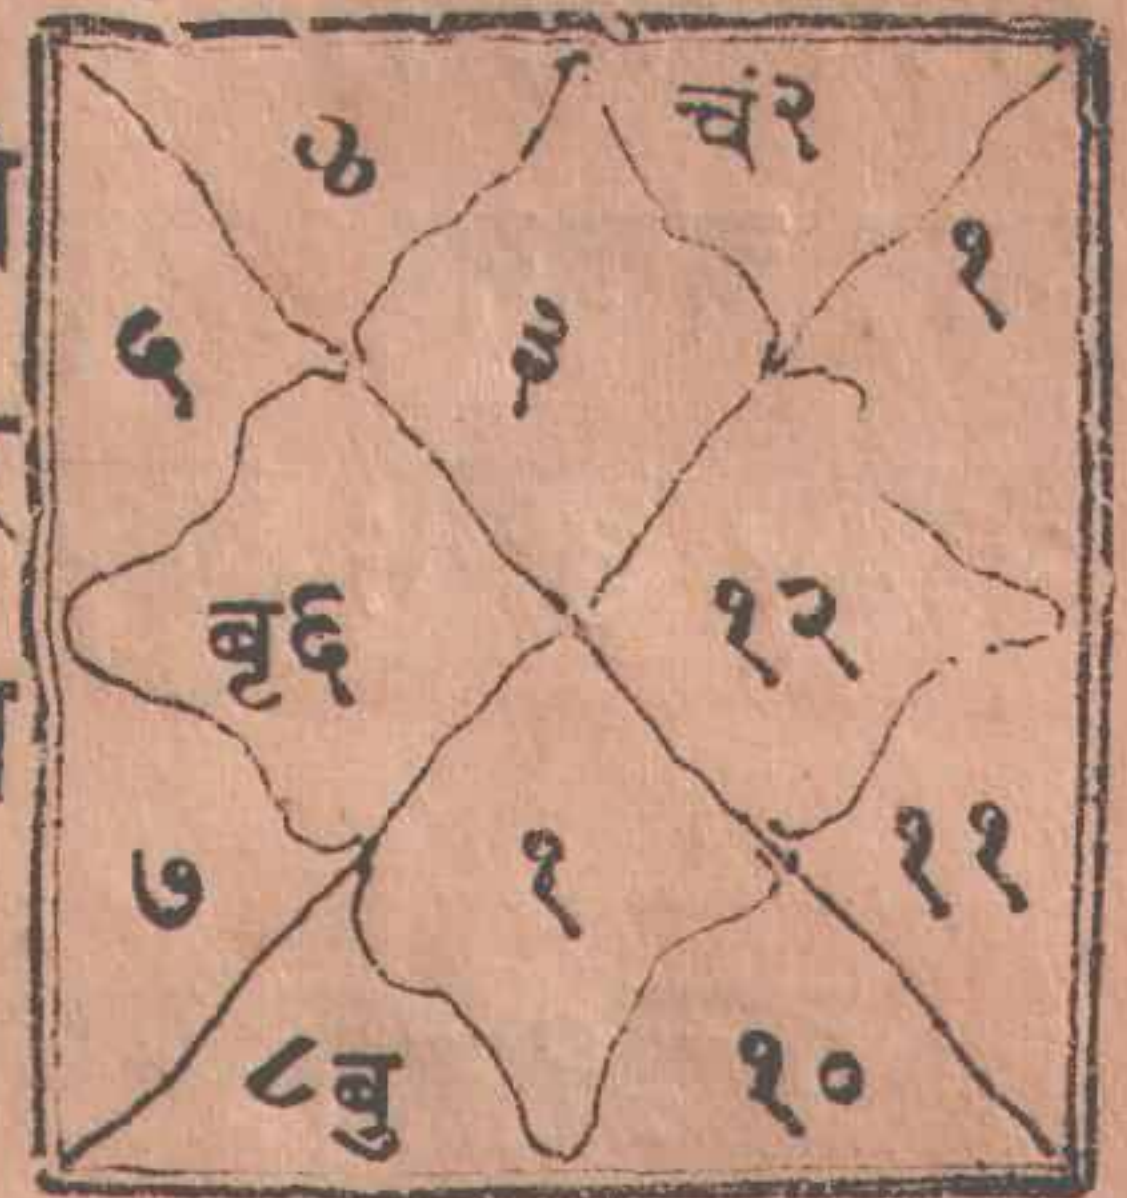 ४ चं२
१
५ ३
बृ६ १२
७ १ ११
८बु १०